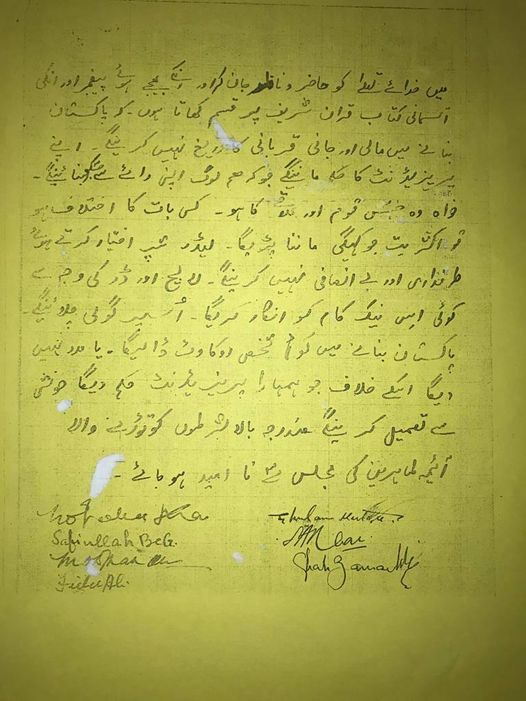 میں خدائے تعالیٰ کو حاضر و ناظر جان کر اور انکے بھیجے ہوئے پیغمبر اور انکی
آسمانی کتاب قرآن شریف پر قسم کھاتا ہوں۔ کہ پاکستان
بنانے میں مالی اور جانی قربانی کا دریغ نہیں کرینگے۔ اپنے
پریزیڈنٹ کا حکم مانینگے جو کہ ہم لوگ اپنی رائے سے بنائینگے۔
خواہ وہ جس قوم اور علاقہ کا ہو۔ کسی بات کا اختلاف ہو
تو اکثریت جو کہیگی ماننا پڑیگا۔ لیڈر شپ اختیار کرتے ہوئے
طرفداری اور بے انصافی نہیں کرینگے۔ لالچ اور ڈر کی وجہ سے
کوئی اس نیک کام کو انکار کریگا۔ اُسپر گولی چلائینگے۔
پاکستان بنانے میں کوئی شخص روکاوٹ ڈالیگا۔ یا مدد نہیں
دیگا اسکے خلاف جو ہمارا پریزیڈنٹ حکم دیگا خوشی
سے تعمیل کرینگے مندرجہ بالا شرطوں کو توڑنے والے
آئیمہ طاہرین کی مجلس سے نا امید ہو جائے۔
Safiullah Beg.
Fida Ali
Shah Zaman